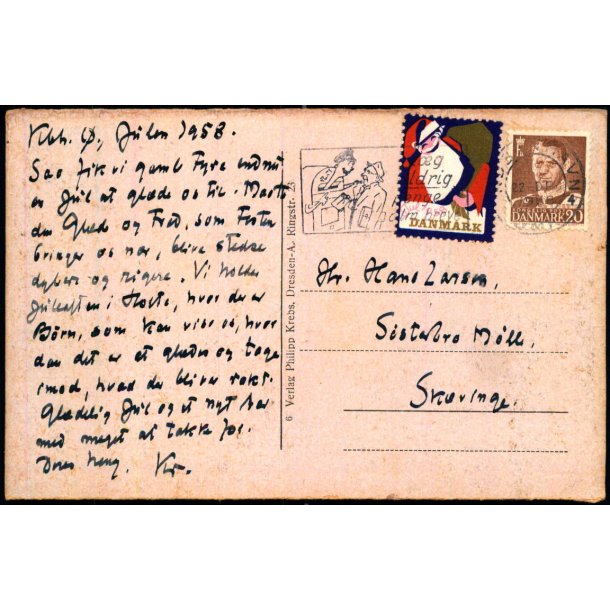 Kbh. Ø, Julen 1958.
Saa fik vi gamle Fyre endnu
en Jul at glæde os til. Maatte
den Glæd og Fred, som Festen
bringer os nær, blive stedse
dybere og rigere. Vi holder
Juleaften i Holte, hvor der er
Børn, som kan vise os, hvor
dan det er at glædes og tage
imod, hvad der bliver rakt.
Glædelig Jul og et nyt Aar
med meget at takke for.
Deres heng. Kr.
6 Verlag Philipp Krebs, Dresden-A., Ringstr. 25
læg
aldrig
penge
DANMARK
DANMARK 20
Hr. Hans Larsen,
Sästebro Mølle,
Skævinge.